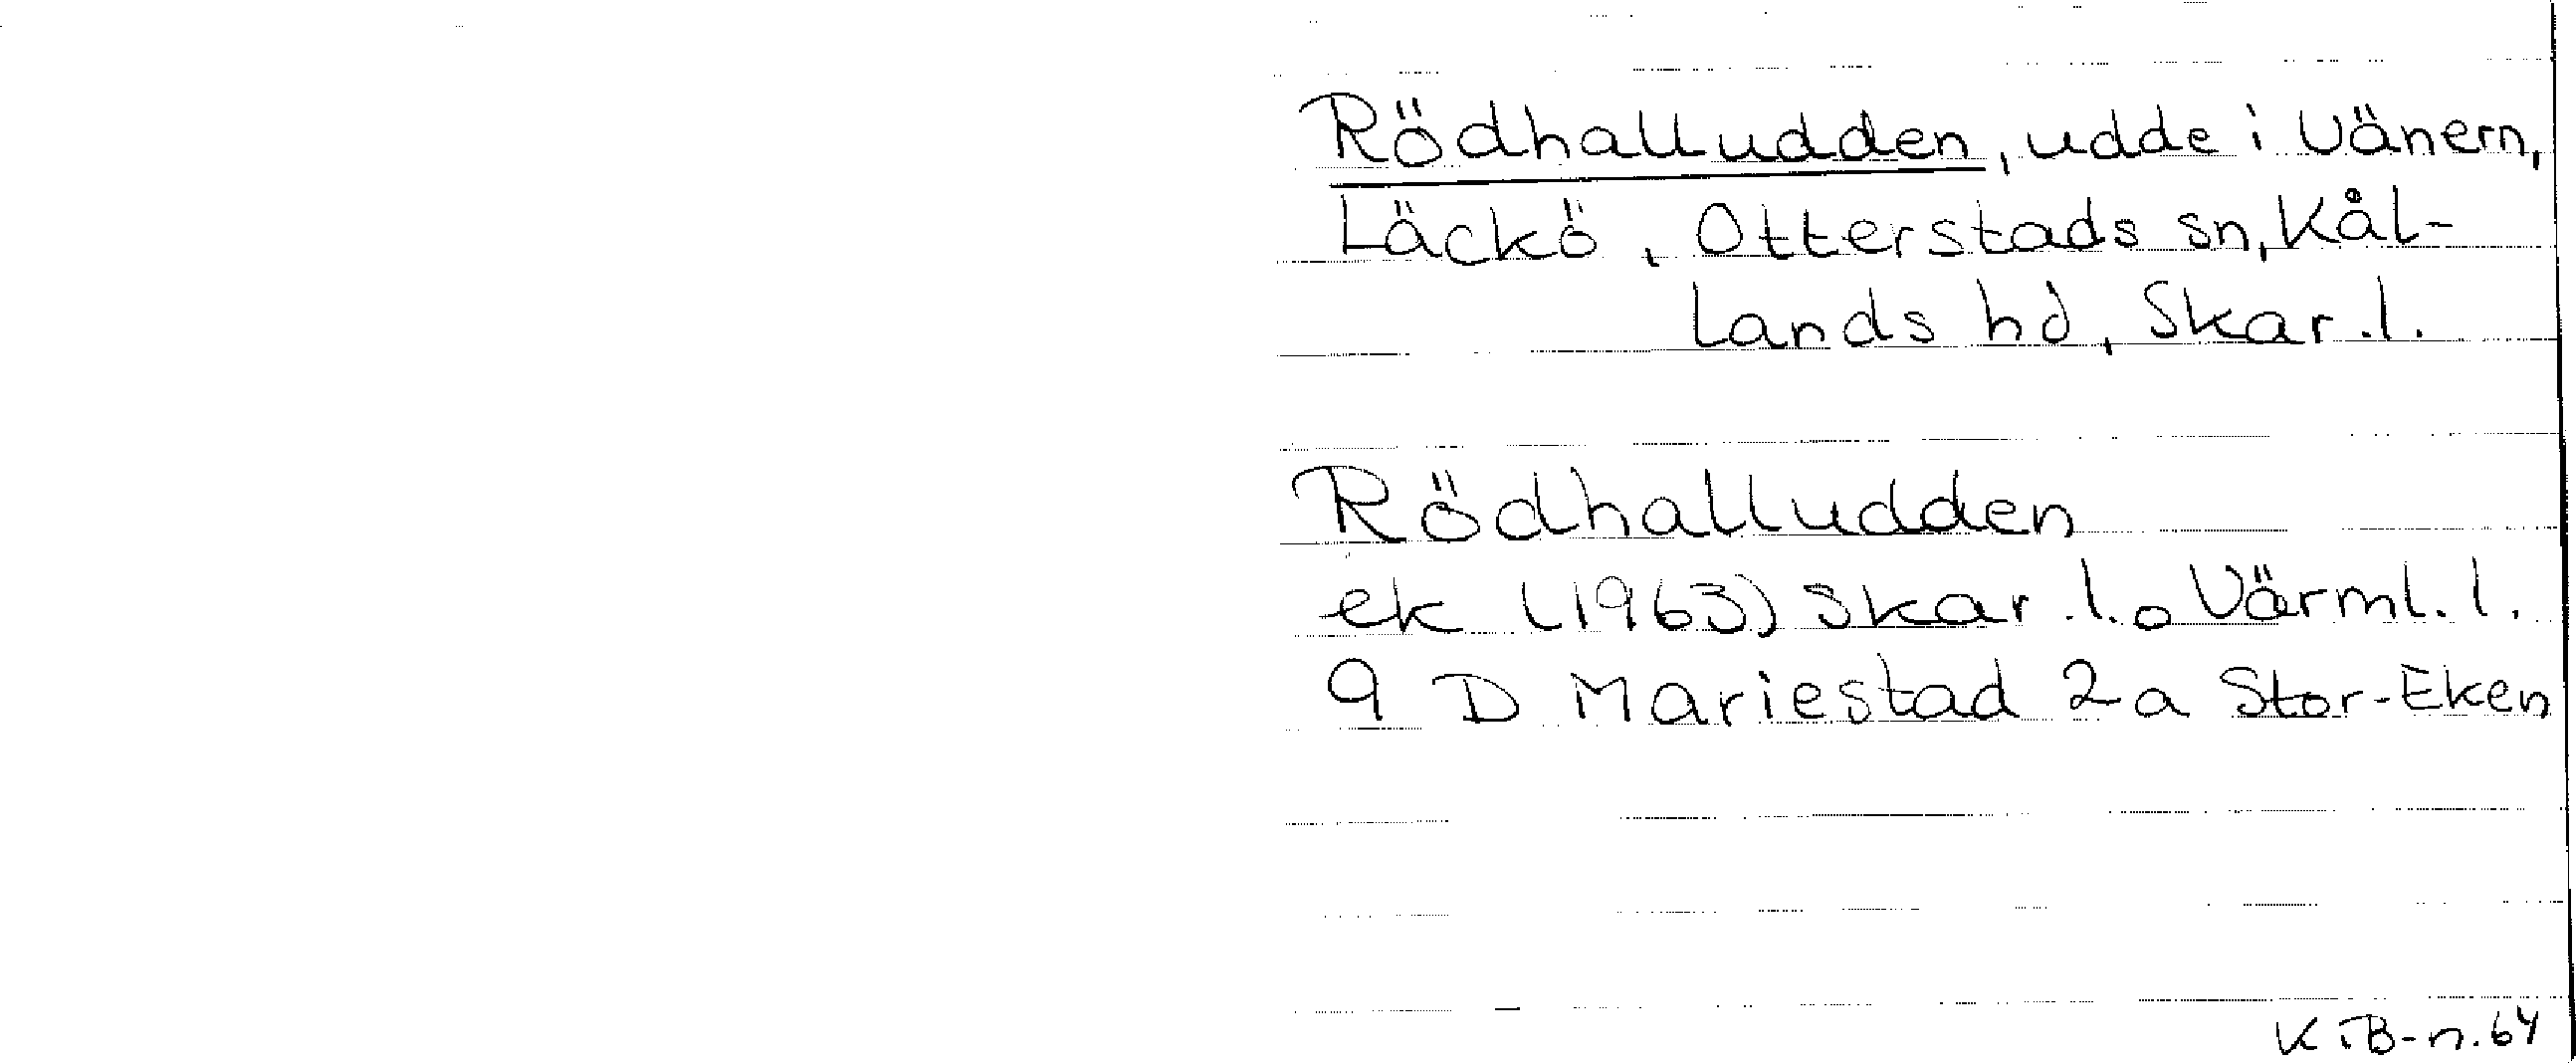 Rödhalludden, udde i Vänern,
Läckö, Otterstads sn, Kål-
lands hd, Skar.l.
Rödhalludden
ek (1963) Skar.l. o Värml.l.
9 D Mariestad 2a Stor-Eken
K.B-n.64